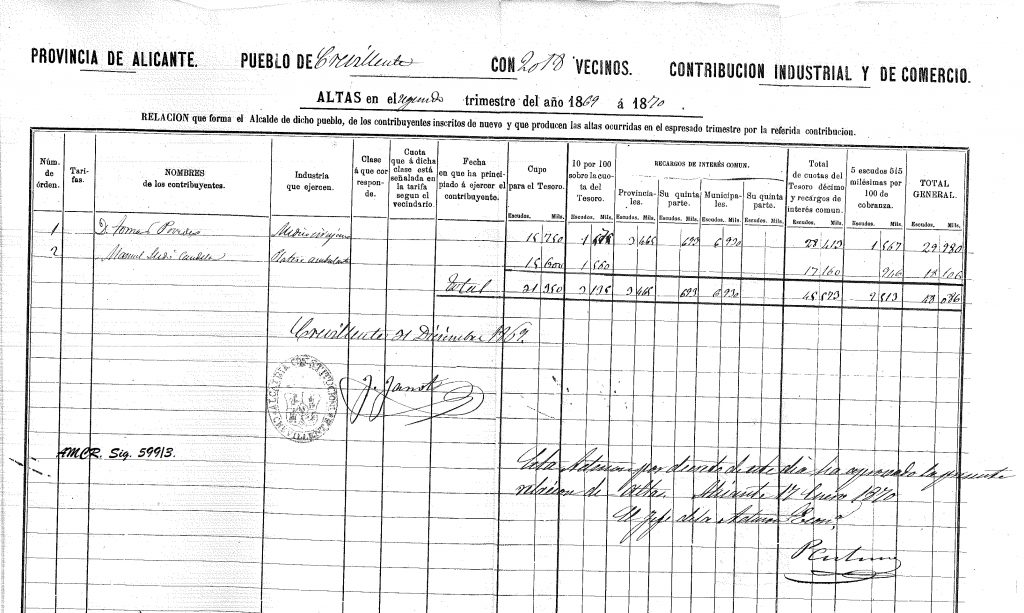 PROVINCIA DE ALICANTE. PUEBLO DE Crevillente CON 2018 VECINOS. CONTRIBUCION INDUSTRIAL Y DE COMERCIO.
ALTAS en el segundo trimestre del año 1869 á 1870
RELACION que forma el Alcalde de dicho pueblo, de los contribuyentes inscritos de nuevo y que producen las altas ocurridas en el espresado trimestre por la referida contribucion.
Núm. de órden. Tarifas. NOMBRES de los contribuyentes. Industria que ejercen. Clase á que corresponde. Cuota que á dicha clase está señalada en la tarifa segun el vecindario. Fecha en que ha principiado á ejercer el contribuyente. Cupo para el Tesoro. 10 por 100 sobre la cuota del Tesoro. RECARGOS DE INTERÉS COMUN. Total de cuotas del Tesoro décimo y recárgos de interés comun. 5 escudos 515 milésimas por 100 de cobranza. TOTAL GENERAL.
Provinciales. Su quinta parte. Municipales. Su quinta parte.
Escudos. Mils. Escudos. Mils. Escudos. Mils. Escudos. Mils. Escudos. Mils. Escudos. Mils. Escudos. Mils. Escudos. Mils. Escudos. Mils.
1 D. Tomas 15 750 3 465 693 6 930 28 413 1 567 29 980
2 Manuel Candela ambulante 15 600 1 560 17 160 946 18 106
Total 31 350 3 135 3 465 693 6 930 45 573 2 513 48 086
Crevillente 31 Diciembre 1869.
ALCALDIA CONSTITUCIONAL CREVILLENTE
AMCR. Sig. 599/3.
Esta por decreto de este dia ha aprobado la presente
relacion de altas. Alicante 17 Enero 1870
El Jefe de la Econ.ª